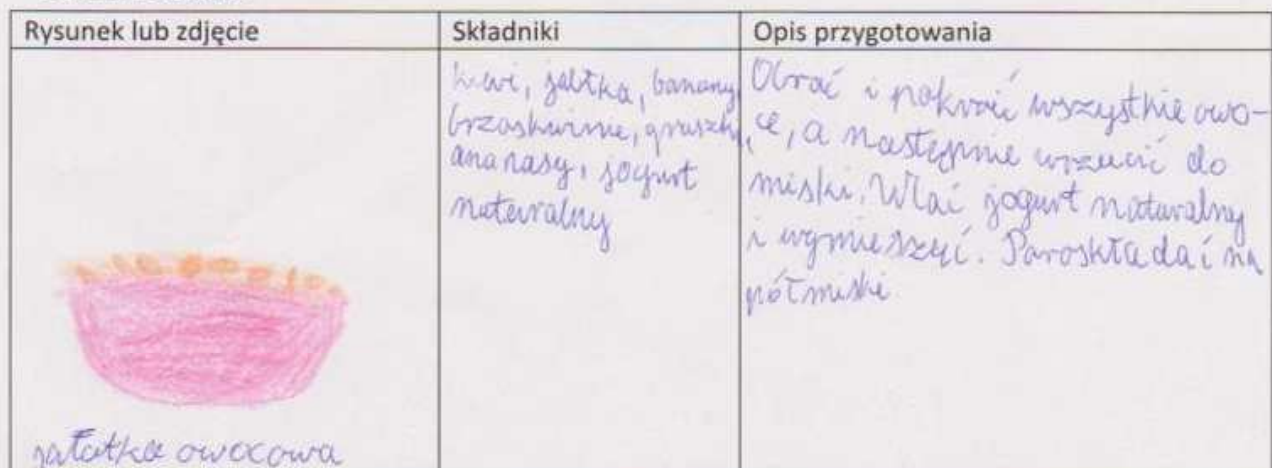 Rysunek lub zdjęcie
Składniki
Opis przygotowania
kiwi, jabłka, banany,
brzoskwinie, gruszki,
ananasy, jogurt
naturalny
Obrać i pokroić wszystkie owo-
ce, a następnie wrzucić do
miski. Wlać jogurt naturalny
i wymieszać. Poroskładać na
półmiski
sałatka owocowa